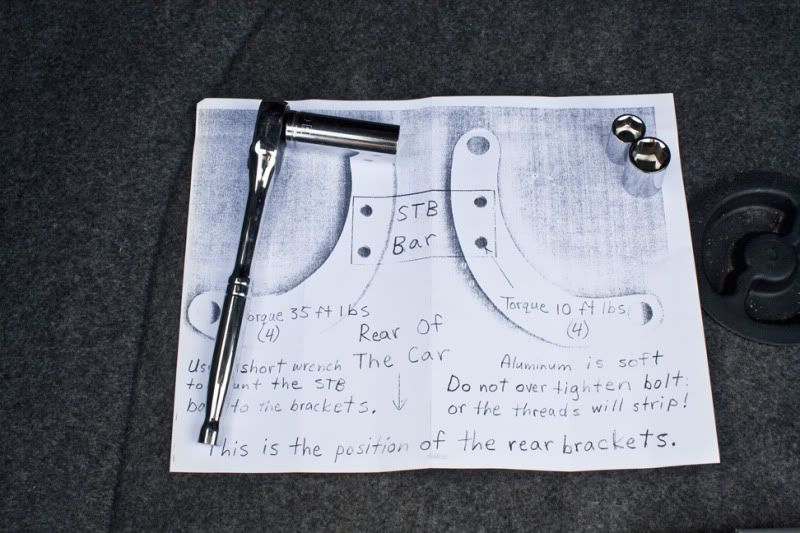 STB
Bar
orque 35 ft lbs
(4)
Torque 10 ft lbs.
(4)
Rear Of
The Car
Us short wrench
to unt the STB
ba to the brackets.
Aluminum is soft
Do not over tighten bolt.
or the threads will strip!
This is the position of the rear brackets.